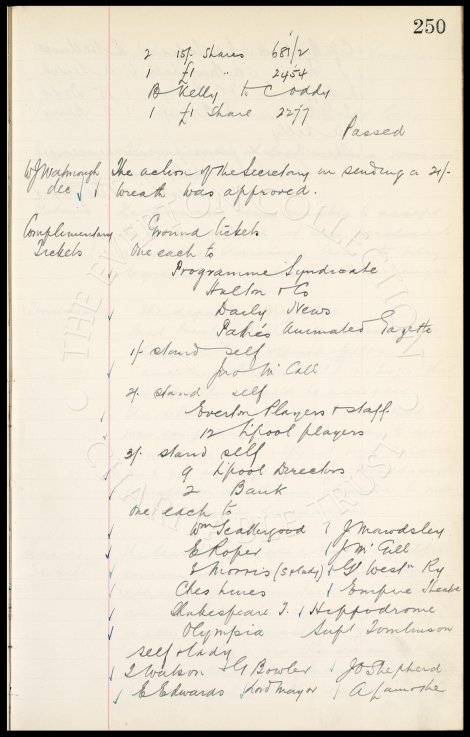 250
2 15/- Shares 681/2
1 £1 " 2454
B Kelly to Coddy
1 £1 Share 2277
Passed
W J Wabrough dec The action of the Secretary in sending a 21/-
wreath was approved.
Complimentary Ground tickets
Tickets One each to
Programme Syndicate
Hulton & Co
Daily News
Pathé's Animated Gazette
1/- stand self
Jno McCall
2/- stand self
Everton Players & staff
12 L'pool players
3/- stand self
9 L'pool Directors
2 Bank
One each to
Wm Scattergood J Mawdsley
E Roper J McGill
Morris (S & lady) Gt Westn Ry
Ches Lines Empire Theatre
Shakespeare T. Hippodrome
Olympia Supt Tomlinson
self & lady
Watson G Bowler J O Shepherd
E Edwards Lord Mayor A Lamothe
THE EVERTON COLLECTION
CHARITABLE TRUST